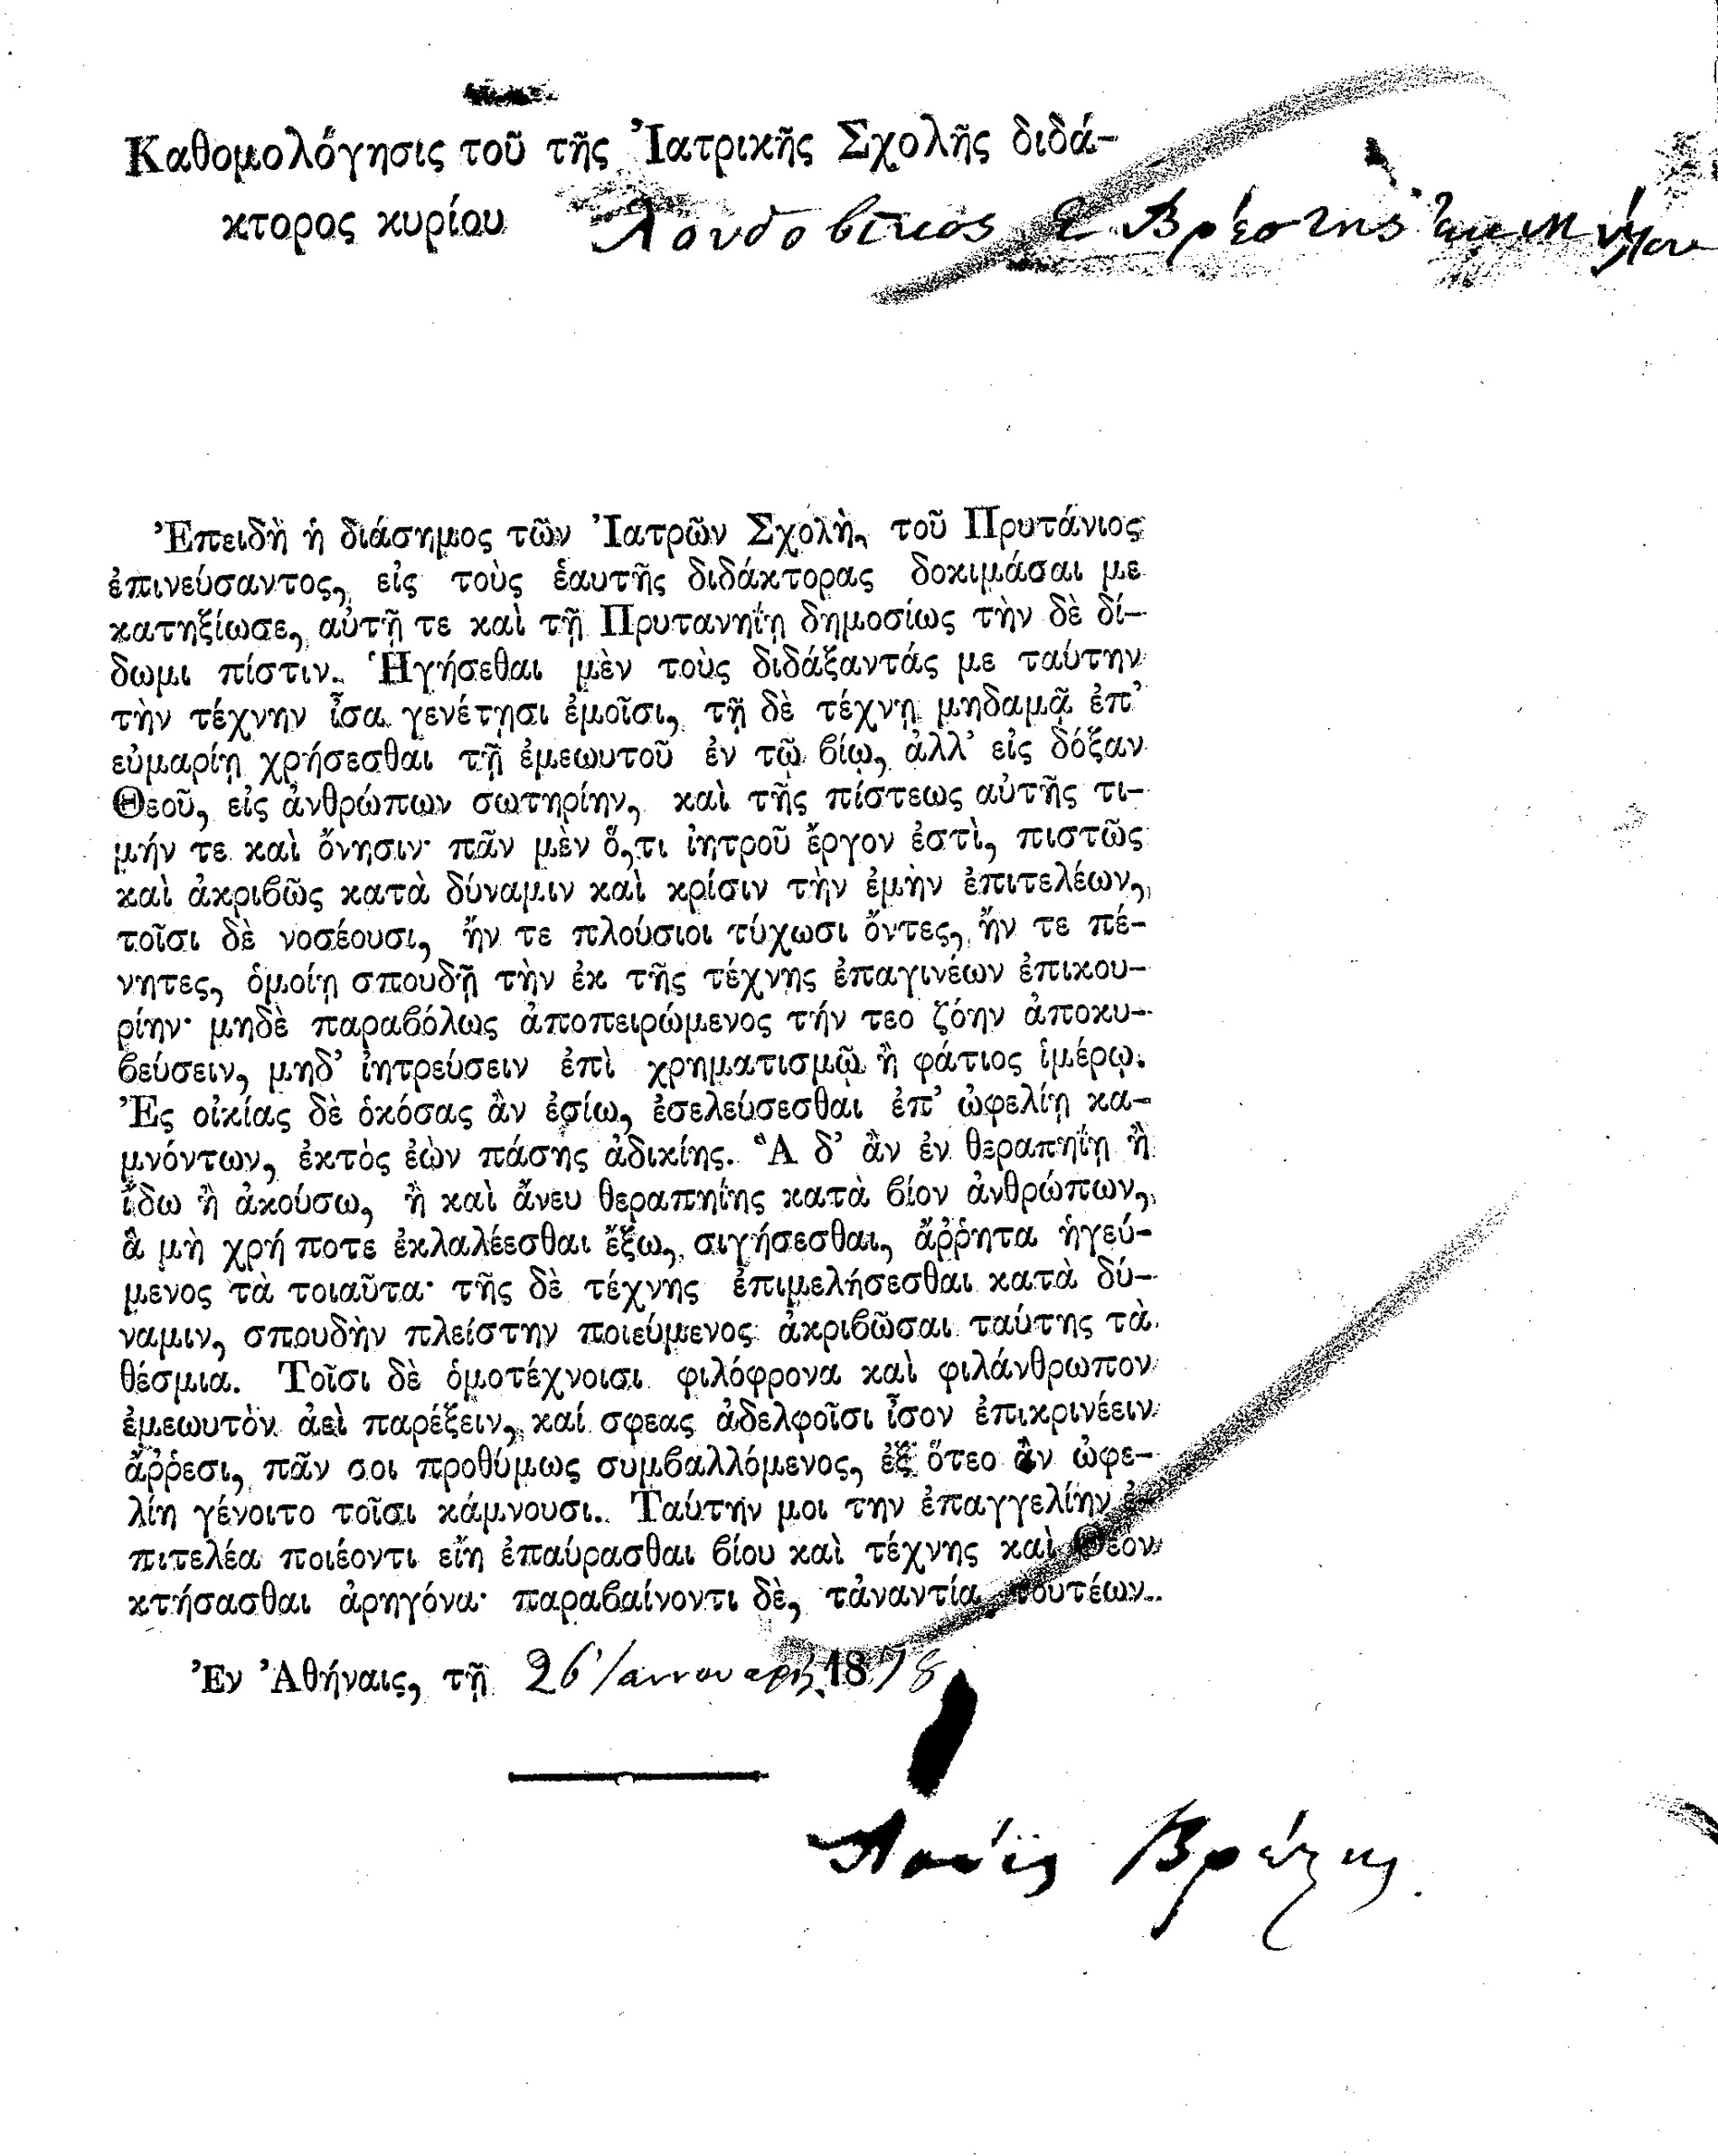 Καθομολόγησις τοῦ τῆς Ἰατρικῆς Σχολῆς διδά-
κτορος κυρίου Λουδοβῖκος Βρέστης ἐκ Μήλου
Ἐπειδὴ ἡ διάσημος τῶν Ἰατρῶν Σχολὴ, τοῦ Πρυτάνιος
ἐπινεύσαντος, εἰς τοὺς ἑαυτῆς διδάκτορας δοκιμάσαι με
κατηξίωσε, αὐτῇ τε καὶ τῇ Πρυτανηΐῃ δημοσίως τὴν δὲ δί-
δωμι πίστιν. Ἡγήσεθαι μὲν τοὺς διδάξαντάς με ταύτην
τὴν τέχνην ἶσα γενέτῃσι ἐμοῖσι, τῇ δὲ τέχνῃ μηδαμᾷ ἐπ’
εὐμαρίῃ χρήσεσθαι τῇ ἐμεωυτοῦ ἐν τῷ βίῳ, ἀλλ’ εἰς δόξαν
Θεοῦ, εἰς ἀνθρώπων σωτηρίην, καὶ τῆς πίστεως αὐτῆς τι-
μήν τε καὶ ὄνησιν· πᾶν μὲν ὅ,τι ἰητροῦ ἔργον ἐστὶ, πιστῶς
καὶ ἀκριβῶς κατὰ δύναμιν καὶ κρίσιν τὴν ἐμὴν ἐπιτελέων,
τοῖσι δὲ νοσέουσι, ἤν τε πλούσιοι τύχωσι ὄντες, ἤν τε πέ-
νητες, ὁμοίῃ σπουδῇ τὴν ἐκ τῆς τέχνης ἐπαγινέων ἐπικου-
ρίην· μηδὲ παραβόλως ἀποπειρώμενος τήν τεο ζόην ἀποκυ-
βεύσειν, μηδ’ ἰητρεύσειν ἐπὶ χρηματισμῷ ἢ φάτιος ἱμέρῳ.
Ἐς οἰκίας δὲ ὁκόσας ἂν ἐσίω, ἐσελεύσεσθαι ἐπ’ ὠφελίῃ κα-
μνόντων, ἐκτὸς ἐὼν πάσης ἀδικίης. Ἃ δ’ ἂν ἐν θεραπηΐῃ ἢ
ἴδω ἢ ἀκούσω, ἢ καὶ ἄνευ θεραπηΐης κατὰ βίον ἀνθρώπων,
ἃ μὴ χρή ποτε ἐκλαλέεσθαι ἔξω, σιγήσεσθαι, ἄῤῥητα ἡγεύ-
μενος τὰ τοιαῦτα· τῆς δὲ τέχνης ἐπιμελήσεσθαι κατὰ δύ-
ναμιν, σπουδὴν πλείστην ποιεύμενος ἀκριβῶσαι ταύτης τὰ
θέσμια. Τοῖσι δὲ ὁμοτέχνοισι φιλόφρονα καὶ φιλάνθρωπον
ἐμεωυτὸν ἀεὶ παρέξειν, καί σφεας ἀδελφοῖσι ἶσον ἐπικρινέειν
ἄῤῥεσι, πᾶν σοι προθύμως συμβαλλόμενος, ἐξ ὅτεο ἂν ὠφε-
λίη γένοιτο τοῖσι κάμνουσι. Ταύτην μοι την ἐπαγγελίην ἐ-
πιτελέα ποιέοντι εἴη ἐπαύρασθαι βίου καὶ τέχνης καὶ Θεὸν
κτήσασθαι ἀρηγόνα· παραβαίνοντι δὲ, τἀναντία τουτέων.
Ἐν Ἀθήναις, τῇ 26 Ιαννουαρίου 1878
Λουῒς Βρέστης.